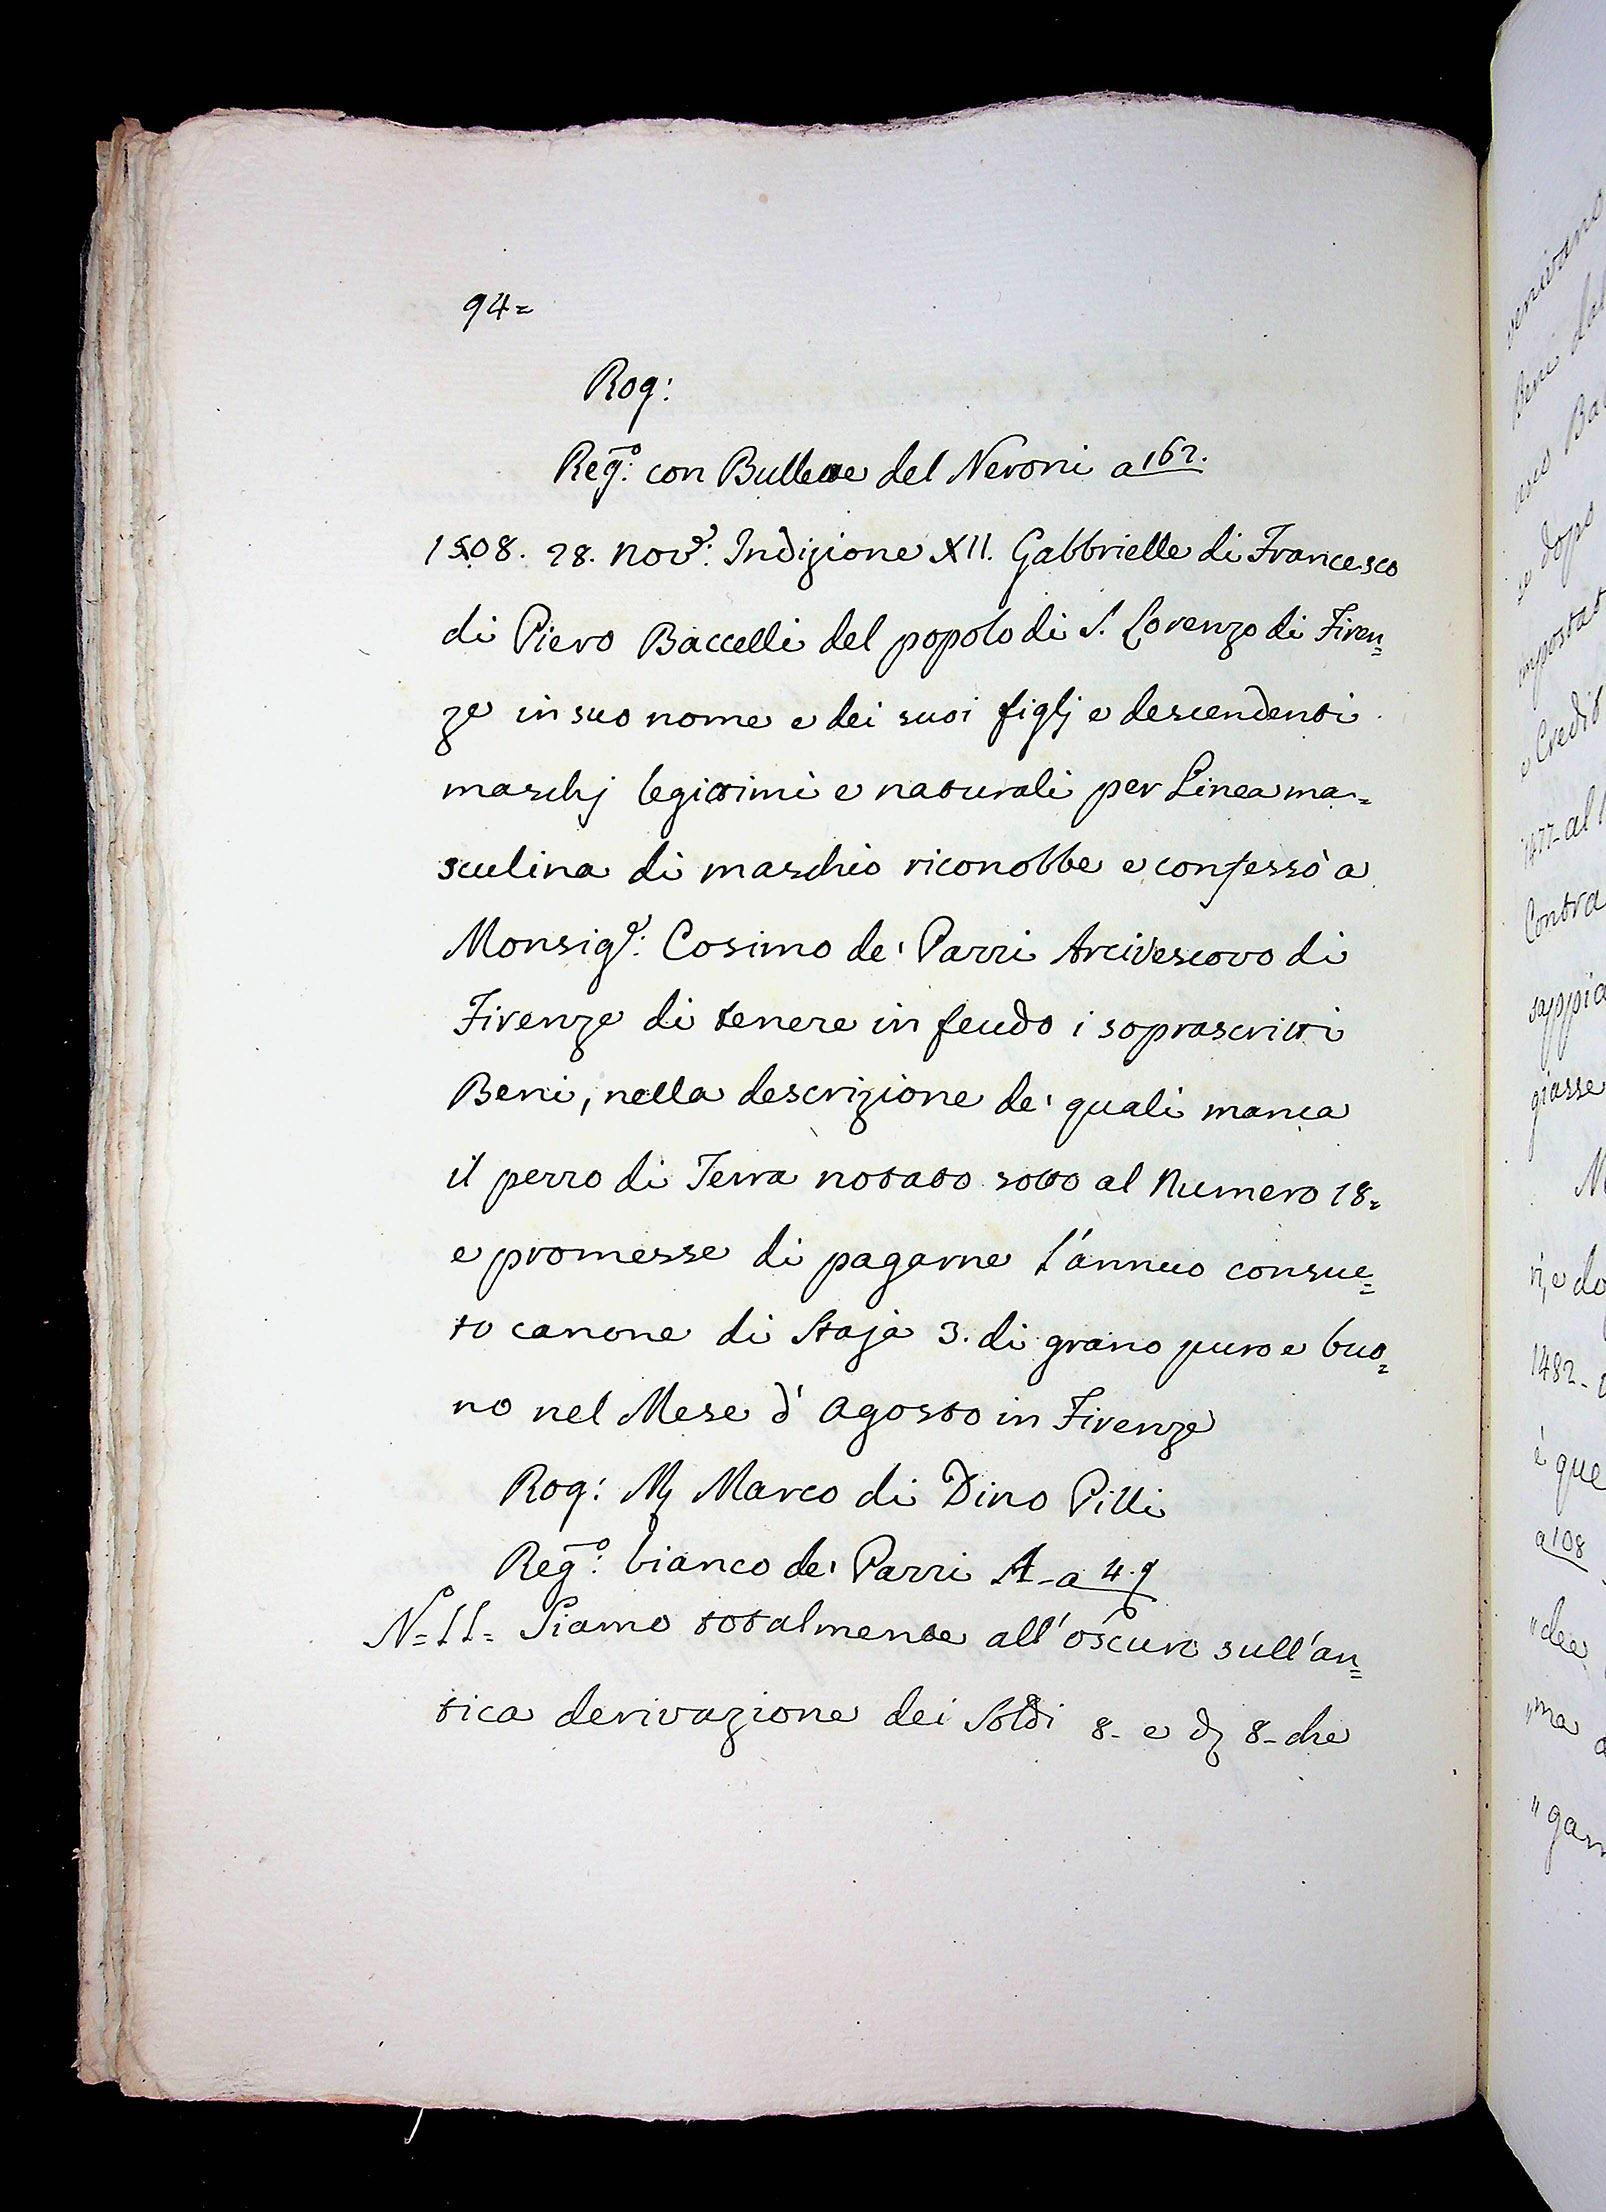 94=
Rog:
Reg.º: con Bullette del Neroni a 162.
1508. 28. Nov.e: Indizione XII. Gabbrielle di Francesco
di Piero Baccelli del popolo di S. Lorenzo di Firen=
ze in suo nome e dei suoi figlj e descendenti
maschj legittimi e naturali per Linea ma=
sculina di maschio riconobbe e confessò a
Monsig.e: Cosimo de' Pazzi Arcivescovo di
Firenze di tenere in feudo i soprascritti
Beni, nella descrizione de' quali manca
il pezzo di Terra notato sotto al Numero 18=
e promesse di pagarne l'annuo consue=
to canone di Staja 3. di grano puro e buo=
no nel Mese d'Agosto in Firenze
Rog: Mʃ Marco di Dino Pilli
Reg.º: bianco de' Pazzi A-a 49
Nº=11= Siamo totalmente all'oscuro sull'an=
tica derivazione dei Soldi 8- e d 8- che
venivano
Beni dal
se dopo
impostat
e Credit
1477-al 1
Contra
sappia
giasse
M
ri, e do
1482-
è que
a 108
"dee
"ma a
"gar